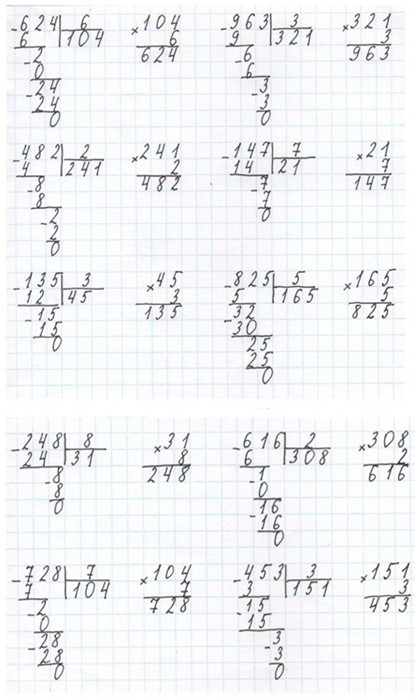 -624|6 ×104 -963|3 ×321
6 |104 6 9 |321 3
-2 624 -6 963
0 6
-24 -3
24 3
0 0
-482|2 ×241 -147|7 ×21
4 |241 2 14 |21 7
-8 482 -7 147
8 7
-2 0
2
0
-135|3 ×45 -825|5 ×165
12 |45 3 5 |165 5
-15 135 -32 825
15 30
0 25
25
0
-248|8 ×31 -616|2 ×308
24 |31 8 6 |308 2
-8 248 -1 616
8 0
0 -16
16
0
-728|7 ×104 -453|3 ×151
7 |104 7 3 |151 3
-2 728 -15 453
0 15
-28 -3
28 3
0 0